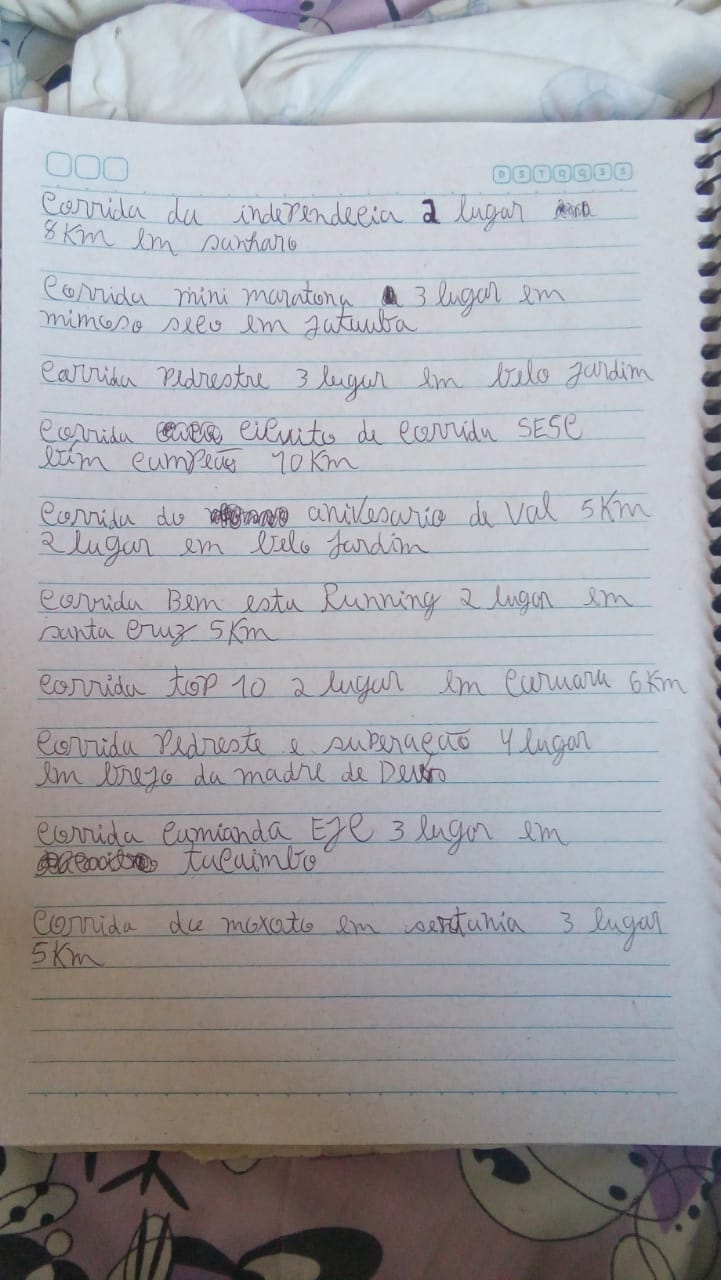 D S T Q Q S S
Corrida da independecia 2 lugar
8Km em sanharo
Corrida mini maratona 3 lugar em
mimoso seco em jatuuba
Carrida Pedrestre 3 lugar em belo jardim
Corrida cicuito de Corrida SESC
campeão 10 Km
Corrida do anivesario de Val 5 Km
2 lugar em belo jardim
Corrida Bem esta Running 2 lugar em
santa Cruz 5 Km
Corrida top 10 2 lugar em Caruaru 6 Km
Corrida Pedreste e superação 4 lugar
em brejo da madre de Deus
Corrida EJC 3 lugar em
tacaimbo
Corrida do moxoto em sertania 3 lugar
5 Km